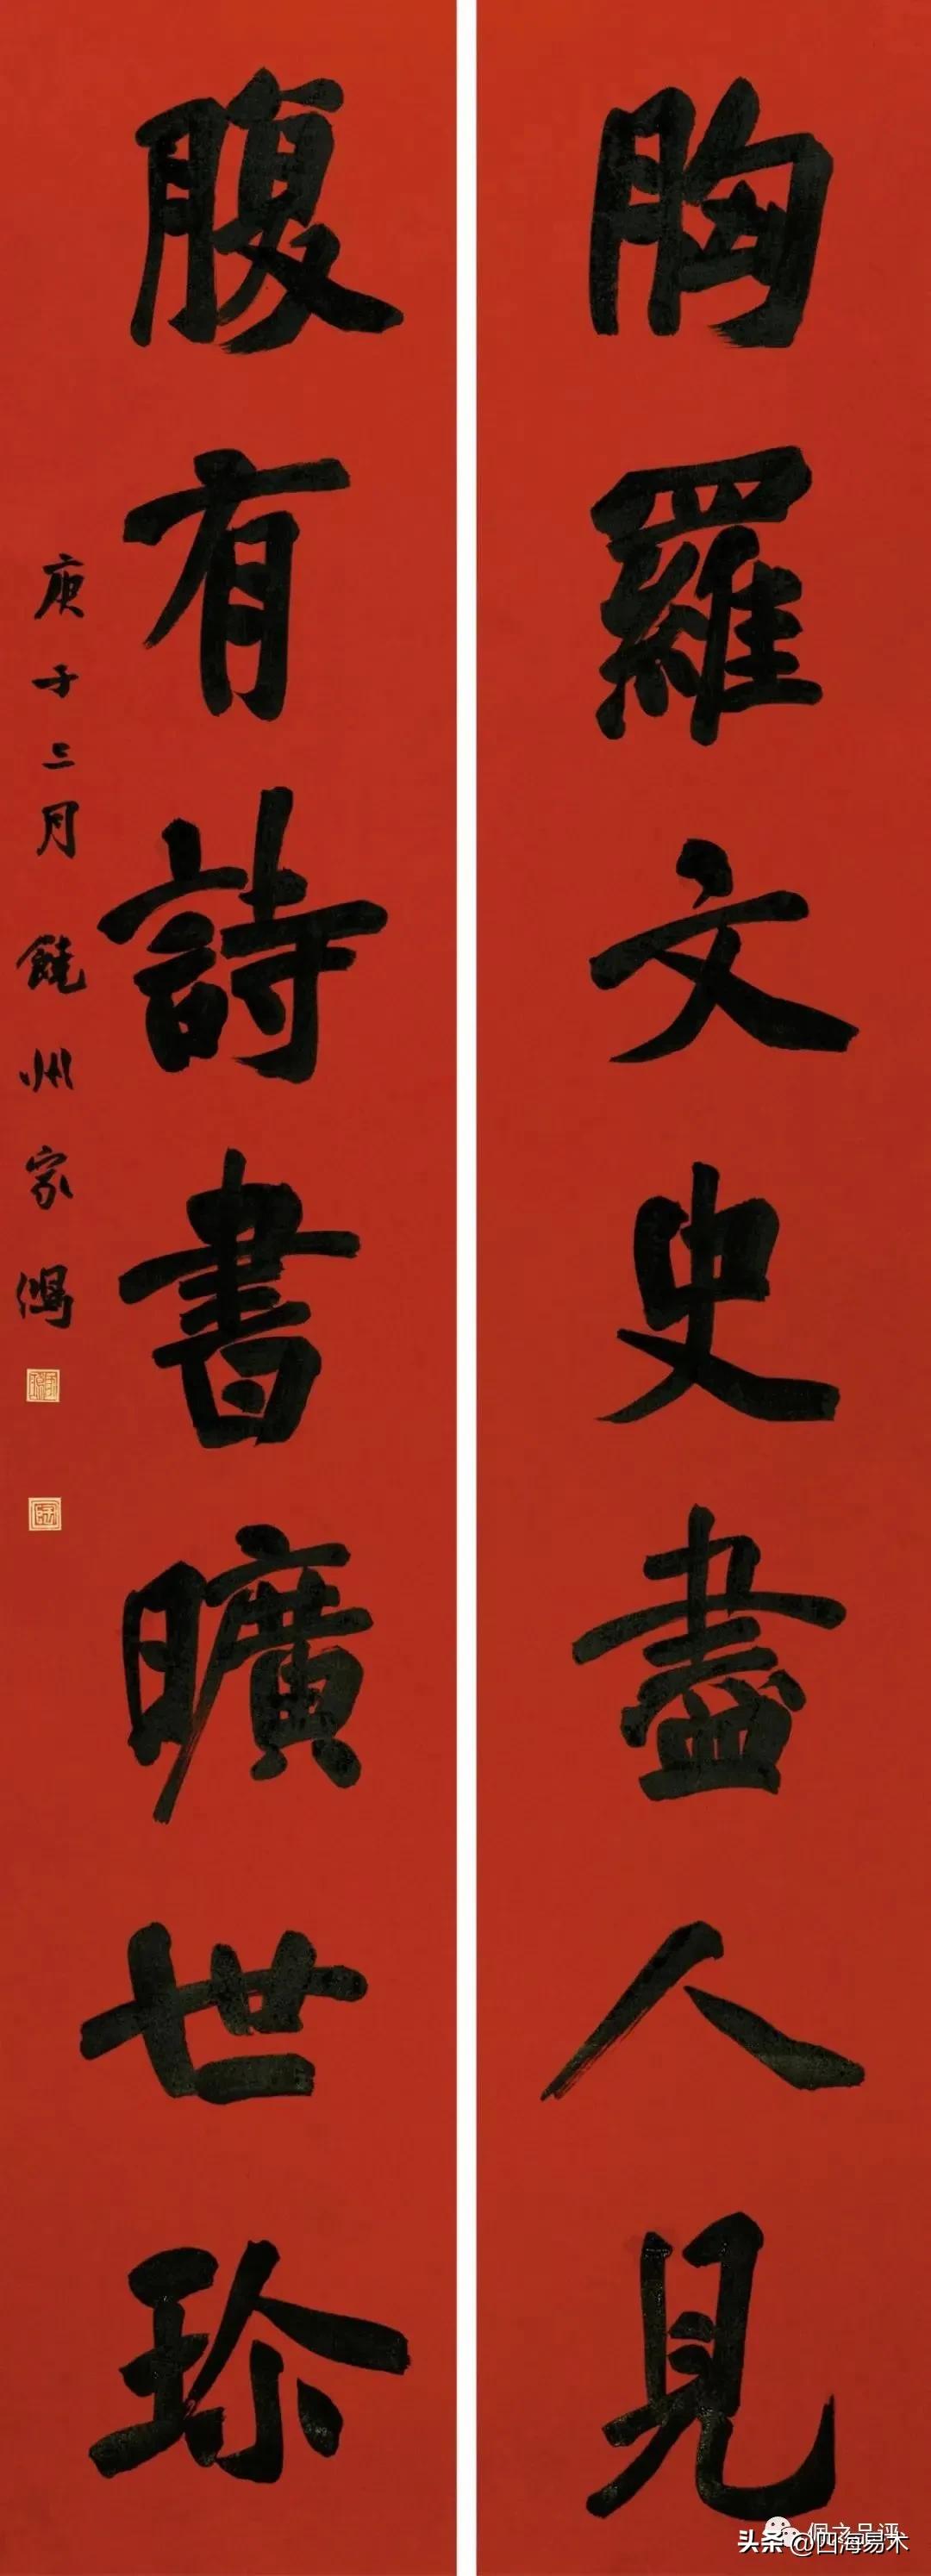 胸羅文史盡人見
腹有詩書曠世珍
庚子三月
饒州家鴻
头条 @四海易术